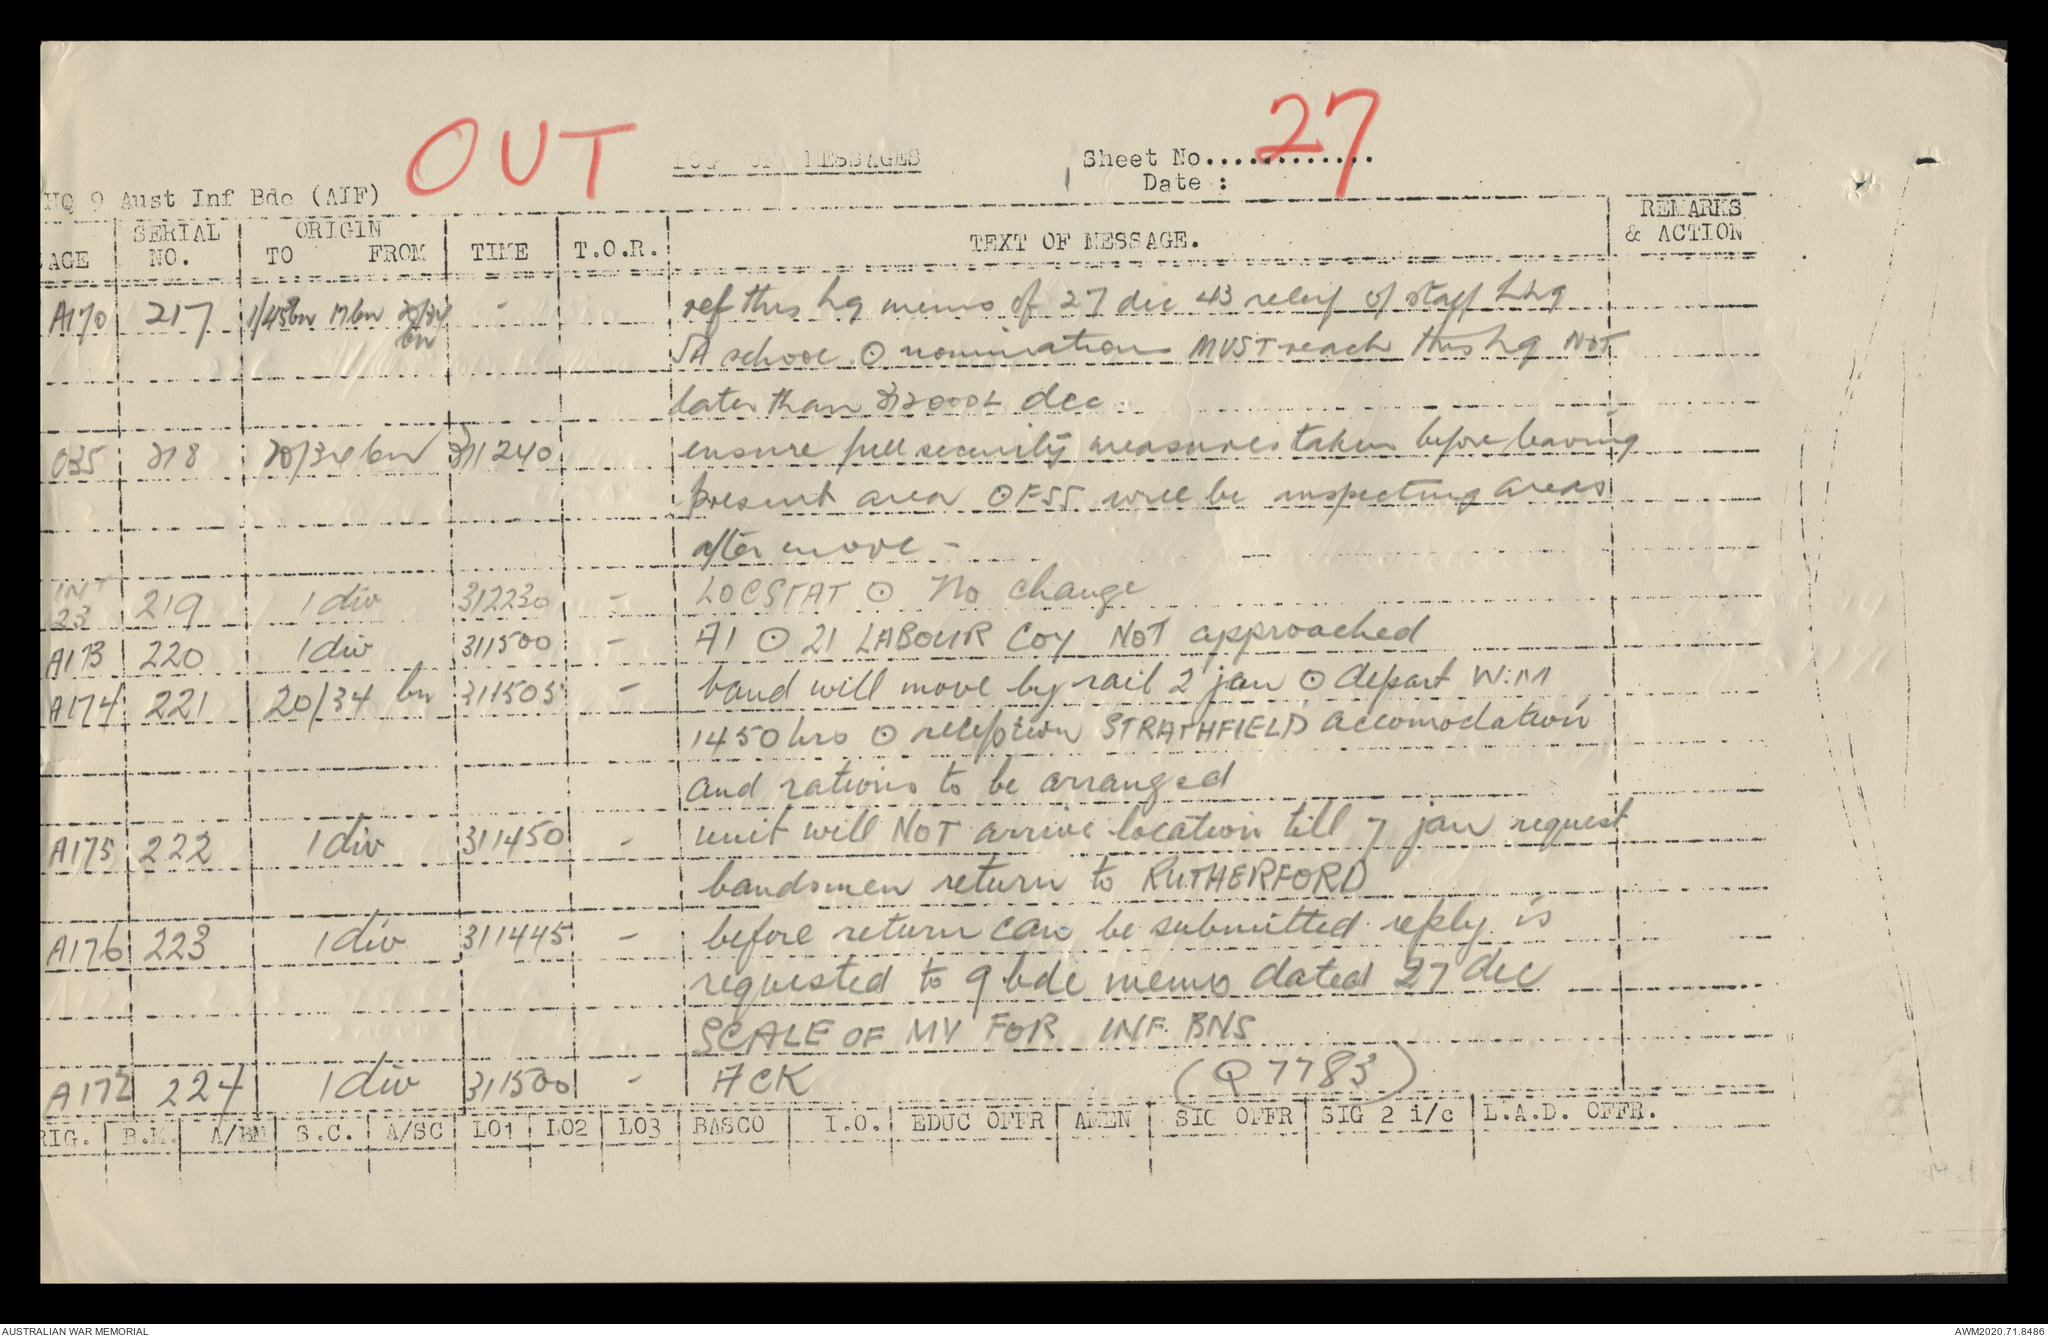 OUT
LOG OF MESSAGES
Sheet No............. 27
Date :
HQ 9 Aust Inf Bde (AIF)
AGE SERIAL NO. ORIGIN TO FROM TIME T.O.R. TEXT OF MESSAGE. REMARKS & ACTION
A170 217 1/45bn 17bn 20/34 bn - ref this hq memo of 27 dec 43 relief of staff
SA school ⊙ nominations MUST reach this hq NOT
later than 312000L dec
035 218 20/34 bn 311240 ensure full security measures taken before leaving
present area ⊙ FSS will be inspecting areas
after move -
INT 23 219 1 div 312230 - LOCSTAT ⊙ No change
A173 220 1 div 311500 - A1 ⊙ 21 LABOUR COY NOT approached
A174 221 20/34 bn 311505 - band will move by rail 2 jan ⊙ depart W.M
1450 hrs ⊙ reception STRATHFIELD accomodation
and rations to be arranged
A175 222 1 div 311450 - unit will NOT arrive location till 7 jan request
bandsmen return to RUTHERFORD
A176 223 1 div 311445 - before return can be submitted reply is
requested to 9 bde memo dated 27 dec
SCALE OF MV FOR INF BNS
A172 224 1 div 311500 - ACK (Q 7783)
RIG. B.M. A/BM S.C. A/SC LO1 LO2 LO3 BASCO I.O. EDUC OFFR AMEN SIG OFFR SIG 2 i/c L.A.D. OFFR.
AUSTRALIAN WAR MEMORIAL
AWM2020.71.8486